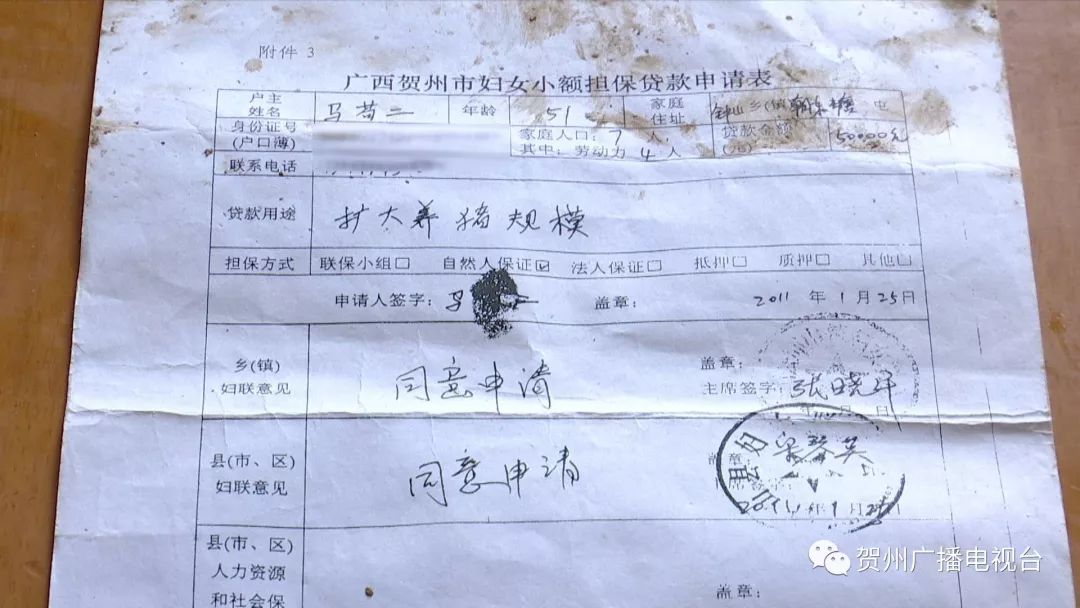 附件 3
广西贺州市妇女小额担保贷款申请表
户主姓名 马苟二 年龄 51 家庭住址 钟山 乡(镇)
身份证号(户口簿) 家庭人口:7 人 其中:劳动力 4 人 贷款金额(元) 50000元
联系电话
贷款用途 扩大养猪规模
担保方式 联保小组□ 自然人保证☑ 法人保证□ 抵押□ 质押□ 其他□
申请人签字: 马 二 盖章: 2011 年 1 月 25 日
乡(镇)妇联意见 同意申请 盖章:
主席签字: 张晓平
年 月 日
县(市、区)妇联意见 同意申请 盖章:
2011 年 1 月 25 日
县(市、区)人力资源和社会保 盖章:
贺州广播电视台